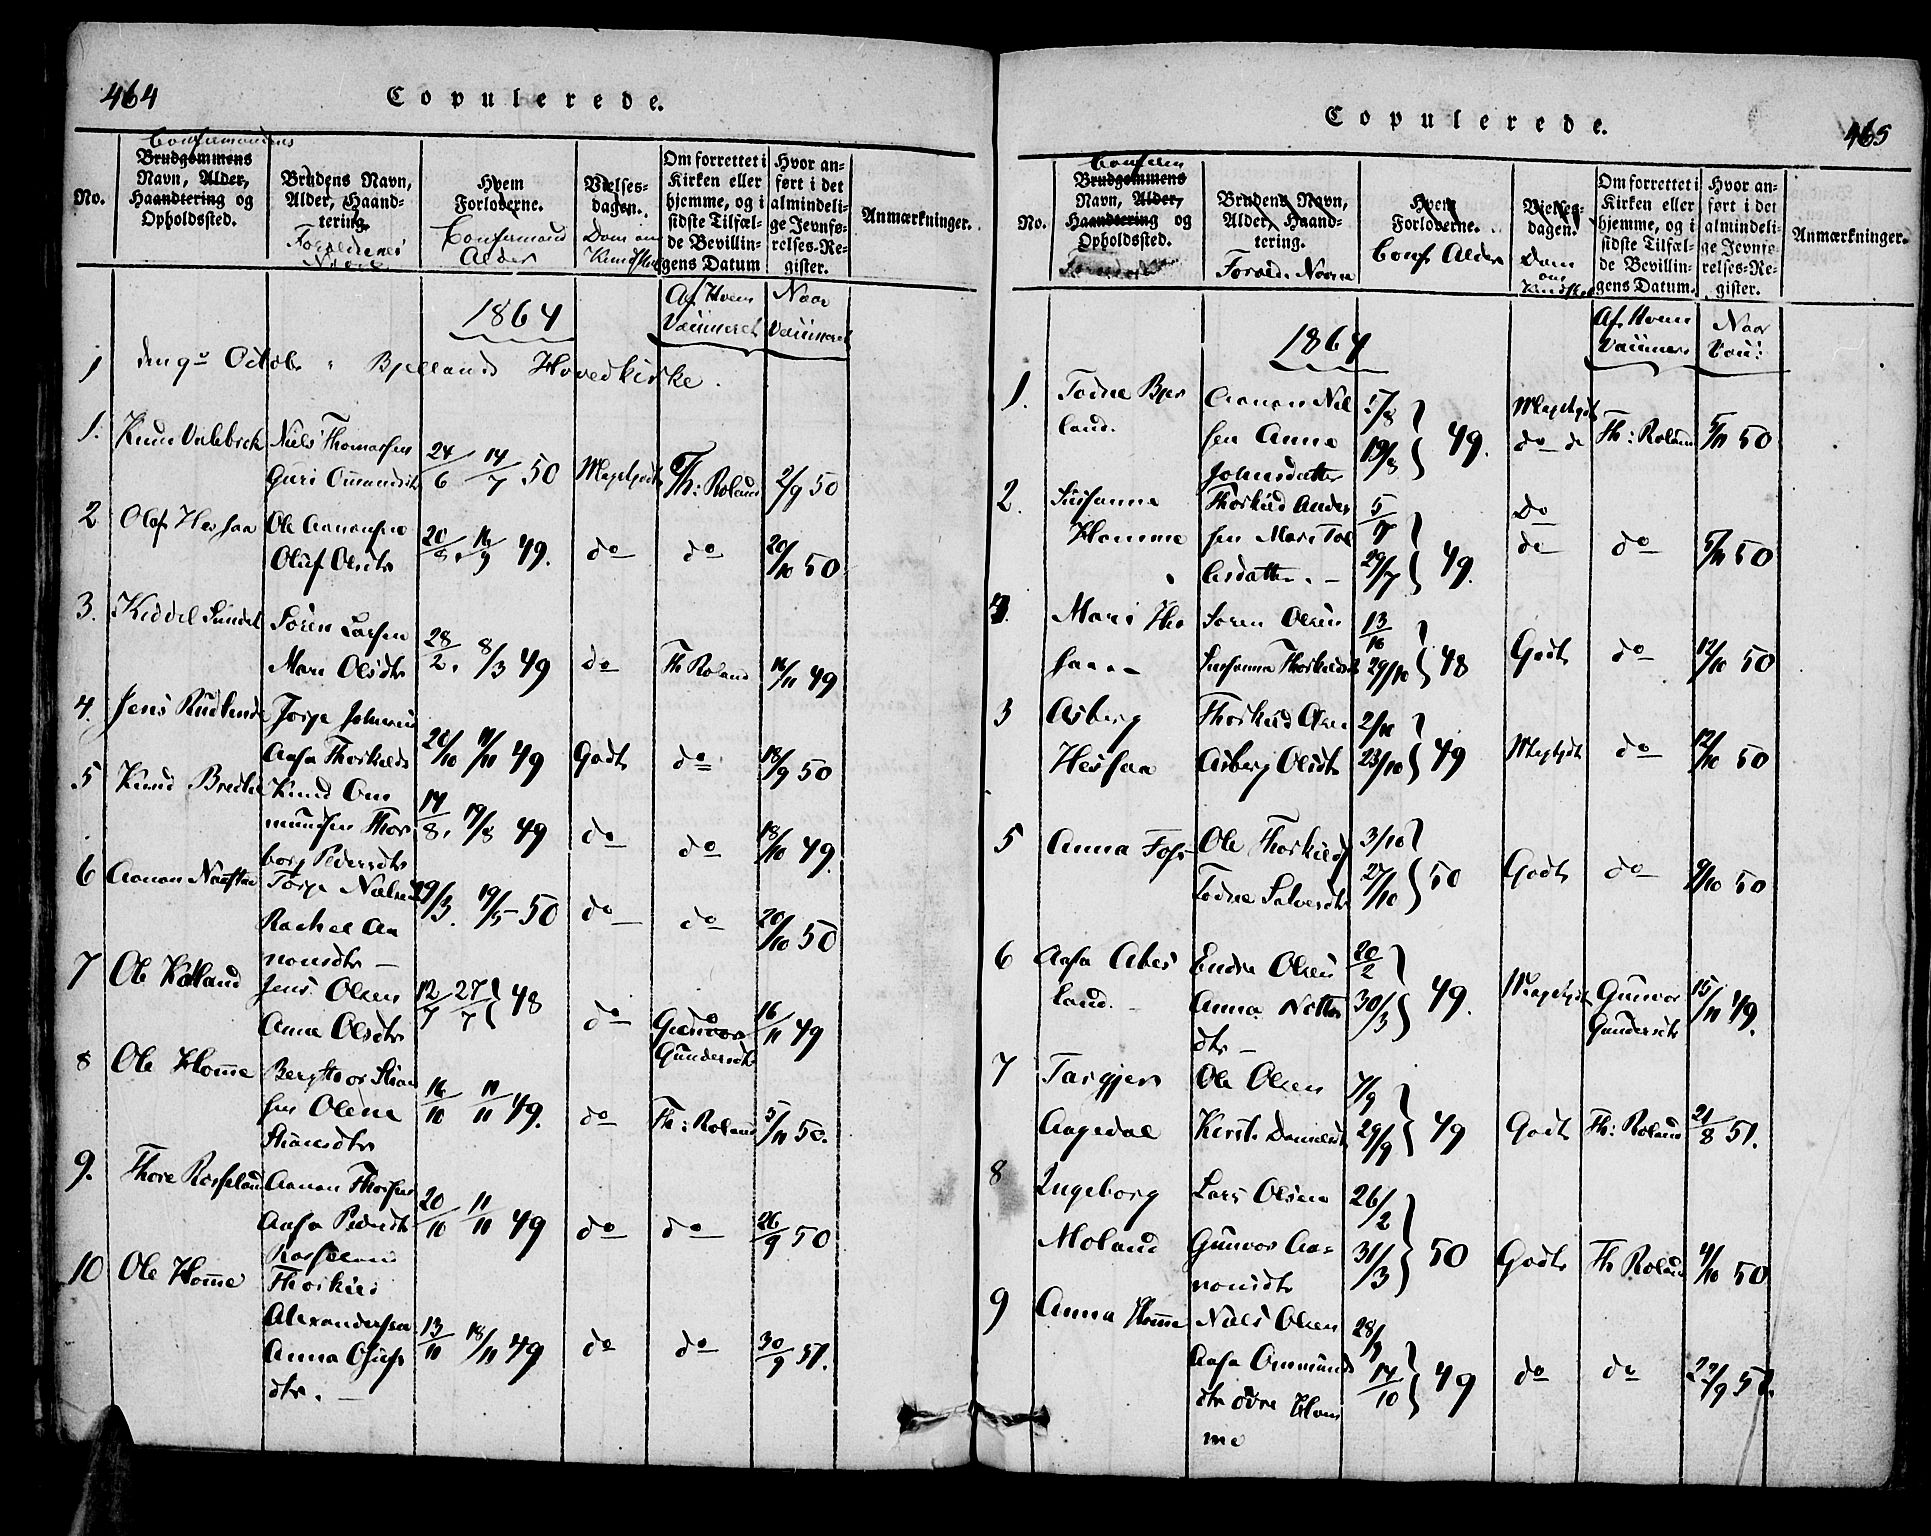 464
Copulerede.
No.
Confirmandens
Brudgommens
Navn, Alder,
Haandtering og
Opholdssted.
Brudens Navn,
Alder, Haand-
tering.
Forældrenes
Navne
Hvem
Forloverne.
Confirmand
Alder
Vielses-
dagen.
Dom om
Kundskab
Om forrettet i
Kirken eller
hjemme, og i
sidste Tilfæl-
de Bevillin-
gens Datum
Hvor an-
ført i det
almindeli-
ge Jevnfø-
relses-Re-
gister.
Anmærkninger.
1864
Af Hvem
Vaccineret
Naar
Vaccineret
den 9de Octobr Bjellands Hovedkirke.
1. Knud
Niels Thomassen
Guri Omundsdtr
24/6 14/7 50
Megetgodt
Th: Roland
2/9 50
2 Olaf Hessaa
Ole Aanensen
Oluf Olsdtr
20/8. 16/9 49.
do
do
20/10 50
3. Kiddel Sundet
Sören Larsen
Mari Olsdtr
28/2. 8/3 49
do
Th Roland
16/11 49
4. Jens
Torje Johnsen
Aasa Thorkilds
20/10 11/10 49
Godt
do
18/9 50
5 Knud
Knud Om
mundsen Thor
borg Pedersdtr
14/8. 19/8 49
do
do
18/10 49.
6 Aanon
Torje Nielsen
Rachel Aa
nonsdtr
19/3. 19/5 50
do
do
20/10 50
7 Ole
Jens Olsen
Anna Olsdtr
12/7 27/7 48
do
Gunvor
Gundersdtr
16/11 49
8 Ole Homme
Bergthor Stian
sen Olene
Stiansdtr
16/10 11/11 49.
do
Th: Roland
5/11 50.
9. Thore Rosseland
Aanon Thorsen
Aasa Pedersdtr
20/10 11/11 49
do
do
26/9 50
10 Ole Homme
Thorkild
Alexandersen
Anna
dtr.
13/10 18/11 49
do
do
30/9 51.
465
Copulerede.
No.
Confirm
Brudgommens
Navn, Alder,
Haandtering og
Opholdssted.
Brudens Navn,
Alder, Haand-
tering.
Foræld. Navne
Hvem
Forloverne.
Conf Alder
Vielses-
dagen.
Dom
om
Kundskab
Om forrettet i
Kirken eller
hjemme, og i
sidste Tilfæl-
de Bevillin-
gens Datum.
Hvor an-
ført i det
almindeli-
ge Jevnfø-
relses-Re-
gister.
Anmærkninger.
1864
Af Hvem
Vaccineret
Naar
Vacci:
1. Todne Bjer
land.
Aanon Niel
sen Anna
Johnsdatter
17/8
19/8 49.
Megetgodt
do
Th: Roland
5/11 50
2. Susanne
Homme
Thorkild Ander
sen Mari Tol
lesdatter.
5/7
29/7 49.
Do
do
do
5/11 50
4. Mari Hes
saa
Soren Olsen
Susanna Thorkildsdtr
13/10
29/10 48
Godt
do
12/10 50
3 Asberg
Hessaa
Thorkild Olsen
Asberg Olsdtr
2/10
23/10 49
Megtgodt
do
12/10 50
5 Anna Foss
Ole Thorkilds
Todne Salvesdtr
3/10
27/10 50
Godt
do
9/10 50
6 Aasa Abes
land.
Endre Olsen
Anna
dtr
20/2
30/3 49.
Megetgodt
Gunvor
Gundersdtr
15/11 49.
7 Targjer
Aagedal
Ole Olsen
Kirsti Danielsdtr
7/9
29/9 49
Godt
Th: Roland
21/8 51.
8 Ingeborg
Moland
Lars Olsen
Gunvor Aa-
nonsdtr
26/2
31/3 50
Godt
Th Roland
11/10 50
9 Anna Homme
Niels Olsen
Aasa Ommunds
dtr övre Hom
me
28/9
14/10 49
do
do
27/9 51.